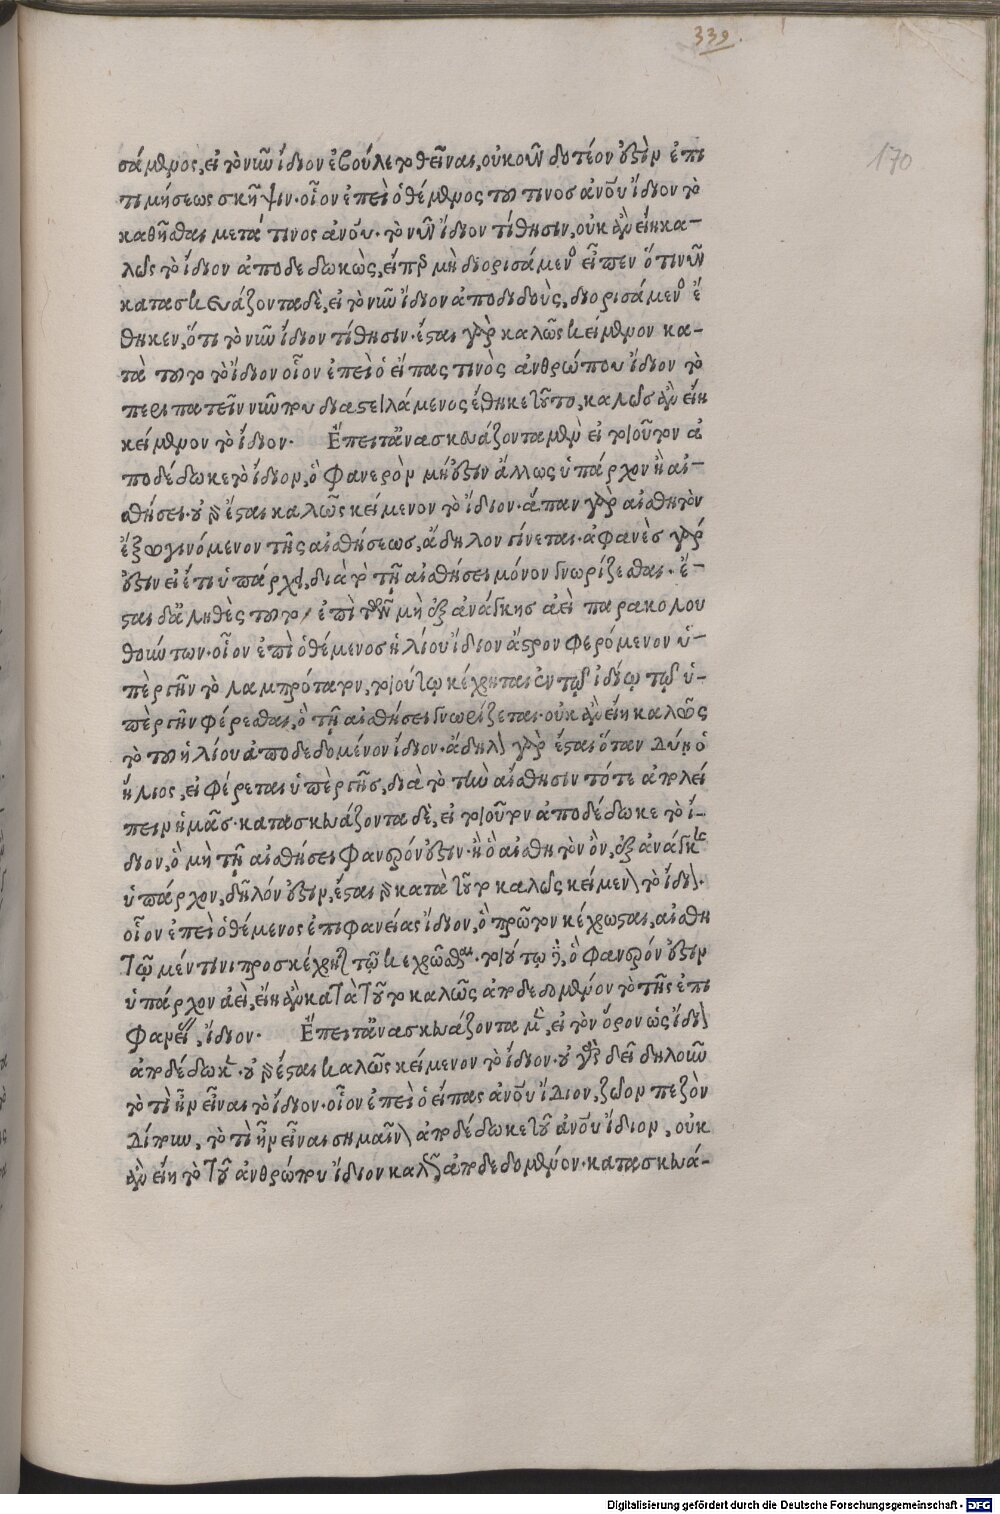 339.
170
σάμενος, εἰ τὸ νῦν ἴδιον ἐβούλετο θεῖναι, οὐκοῦν δοτέον ἐστὶν ἐπι
τιμήσεως σκῆψιν· οἷον ἐπεὶ ὁ θέμενος τοῦ τινος ἀνου ἴδιον τὸ
καθῆσθαι μετά τινος ἀνου· τὸ νῦν ἴδιον τίθησιν, οὐκ ἂν εἴη κα-
λῶς τὸ ἴδιον ἀποδεδωκὼς, εἴπερ μὴ διορισάμενος εἶπεν ὅτι νῦν
κατασκευάζοντα δὲ, εἰ τὸ νῦν ἴδιον ἀποδιδοὺς, διορισάμενος ἔ
θηκεν, ὅτι τὸ νῦν ἴδιον τίθησιν· ἔσται γὰρ καλῶς κείμενον κα-
τὰ τοῦτο τὸ ἴδιον οἷον ἐπεὶ ὁ εἴπας τινὸς ἀνθρώπου ἴδιον τὸ
περιπατεῖν νῦν που διαστειλάμενος ἔθηκε τοῦτο, καλῶς ἂν εἴη
κείμενον τὸ ἴδιον· Ἔπειτ' ἀνασκευάζοντα μὲν εἰ τοιοῦτον ἀ
ποδέδωκε τὸ ἴδιον, ὃ φανερὸν μή ἐστιν ἄλλως ὑπάρχον ἢ αἰ-
σθήσει· οὐ γὰρ ἔσται καλῶς κείμενον τὸ ἴδιον· ἅπαν γὰρ αἰσθητὸν
ἔξω γινόμενον τῆς αἰσθήσεως, ἄδηλον γίνεται· ἀφανὲς γάρ
ἐστιν εἰ ἔτι ὑπάρχει, διὰ τὸ τῇ αἰσθήσει μόνον γνωρίζεσθαι· ἔ-
σται δ' ἀληθὲς τοῦτο, ἐπὶ τῶν μὴ ἐξ ἀνάγκης ἀεὶ παρακολου
θούντων· οἷον ἐπεὶ ὁ θέμενος ἡλίου ἴδιον ἄστρον φερόμενον ὑ-
πὲρ γῆν τὸ λαμπρότατον, τοιούτῳ κέχρηται ἐν τῷ ἰδίῳ τῷ ὑ-
πὲρ γῆν φέρεσθαι, ὃ τῇ αἰσθήσει γνωρίζεται· οὐκ ἂν εἴη καλῶς
τὸ τοῦ ἡλίου ἀποδεδομένον ἴδιον· ἄδηλον γὰρ ἔσται ὅταν δύῃ ὁ
ἥλιος, εἰ φέρεται ὑπὲρ γῆς, διὰ τὸ τὴν αἴσθησιν τότε ἀπολεί
πειν ἡμᾶς· κατασκευάζοντα δὲ, εἰ τοιοῦτον ἀποδέδωκε τὸ ἴ-
διον, ὃ μὴ τῇ αἰσθήσει φανερόν ἐστιν· ἢ ὃ αἰσθητὸν ὂν, ἐξ ἀνάγκης
ὑπάρχον, δῆλόν ἐστιν, ἔσται γὰρ κατὰ τοῦτο καλῶς κείμενον τὸ ἴδιον·
οἷον ἐπεὶ ὁ θέμενος ἐπιφανείας ἴδιον, ὃ πρῶτον κέχρωσται, αἰσθη
τῷ μέν τινι προσκέχρηται τῷ κεχρῶσθαι· τοιούτῳ δέ, ὃ φανερόν ἐστιν
ὑπάρχον ἀεὶ, εἴη ἂν κατὰ τοῦτο καλῶς ἀποδεδομένον τὸ τῆς ἐπι
φανείας, ἴδιον· Ἔπειτ' ἀνασκευάζοντα μὲν, εἰ τὸν ὅρον ὡς ἴδιον
ἀποδέδωκεν· οὐ γὰρ ἔσται καλῶς κείμενον τὸ ἴδιον· οὐ γὰρ δεῖ δηλοῦν
τὸ τὶ ἦν εἶναι τὸ ἴδιον· οἷον ἐπεὶ ὁ εἴπας ἀνου ἴδιον, ζῷον πεζὸν
δίπουν, τὸ τὶ ἦν εἶναι σημαῖνον ἀποδέδωκε τοῦ ἀνου ἴδιον, οὐκ
ἂν εἴη τὸ τοῦ ἀνθρώπου ἴδιον καλῶς ἀποδεδομένον· κατασκευά-
Digitalisierung gefördert durch die Deutsche Forschungsgemeinschaft - DFG